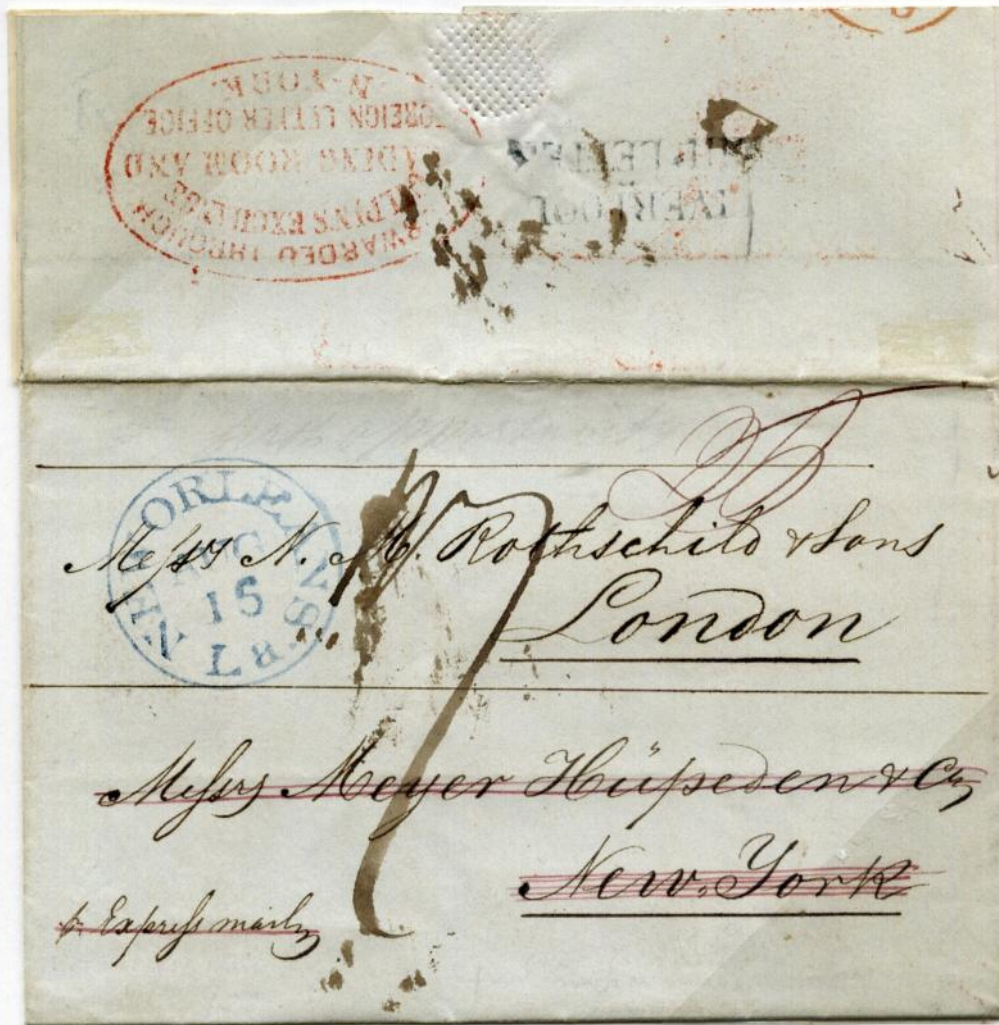 FORWARDED THROUGH
GILPIN'S EXCHANGE
READING ROOM AND
FOREIGN LETTER OFFICE
N-YORK.
LIVERPOOL
SHIP LETTER
NEW ORLEANS
AUG
15
La.
Messrs N. M. Rothschild & Sons
London
Messrs Meyer Hüpeden & Co
New-York
pr. Express mail